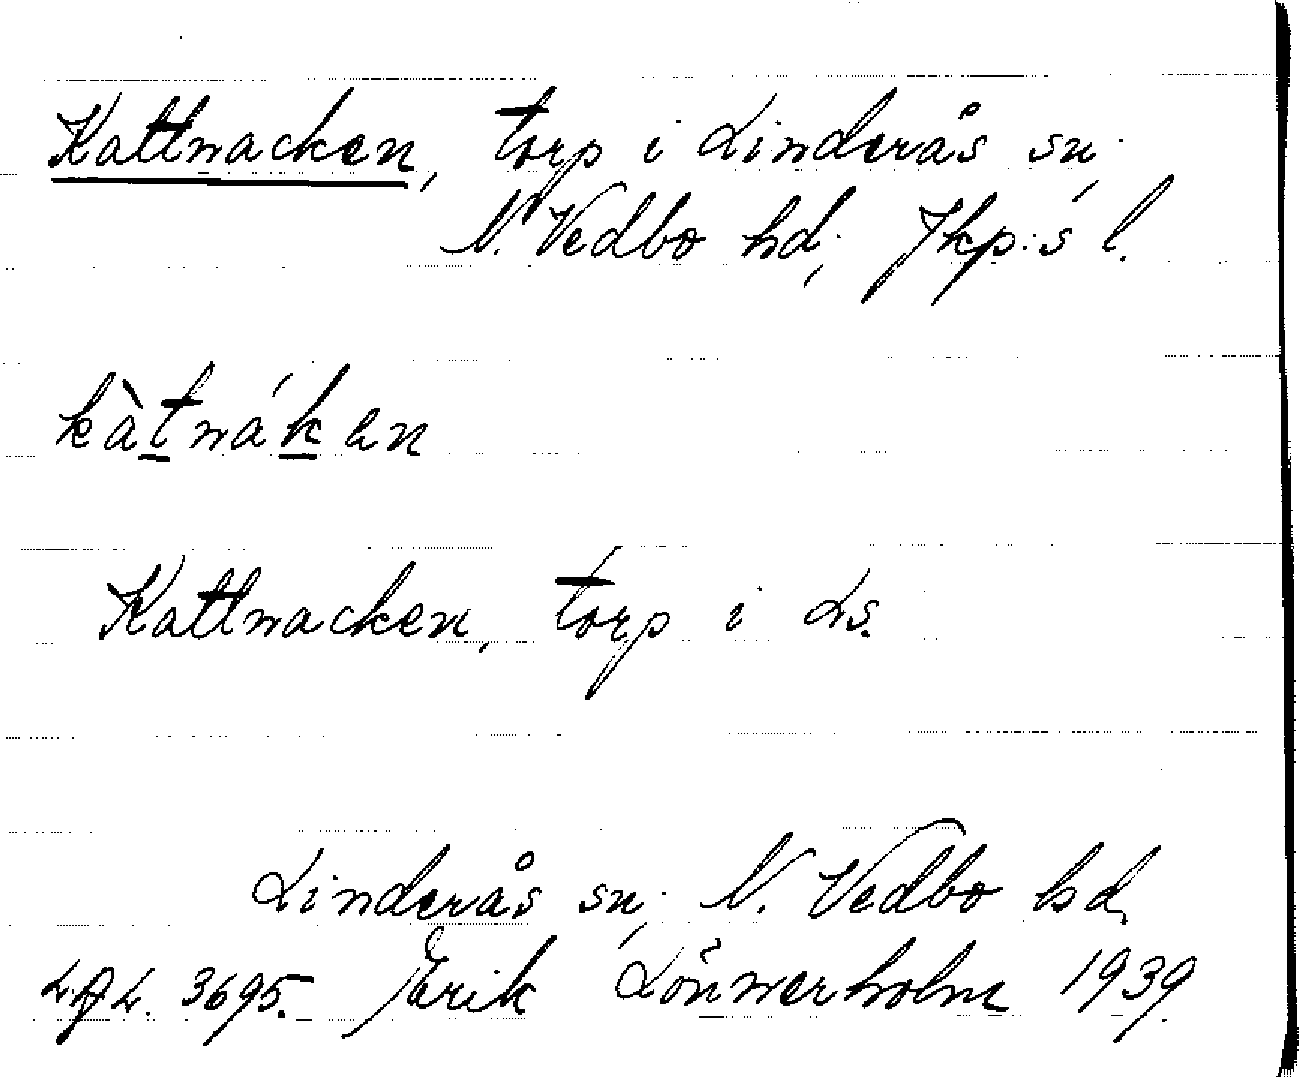 Kattnacken, torp i Linderås sn,
N. Vedbo hd, Jkp:s l.
kàtnáken
Kattnacken, torp i Ls.
Linderås sn, N. Vedbo hd.
L.A.L. 3695. Erik Lönnerholm 1939.